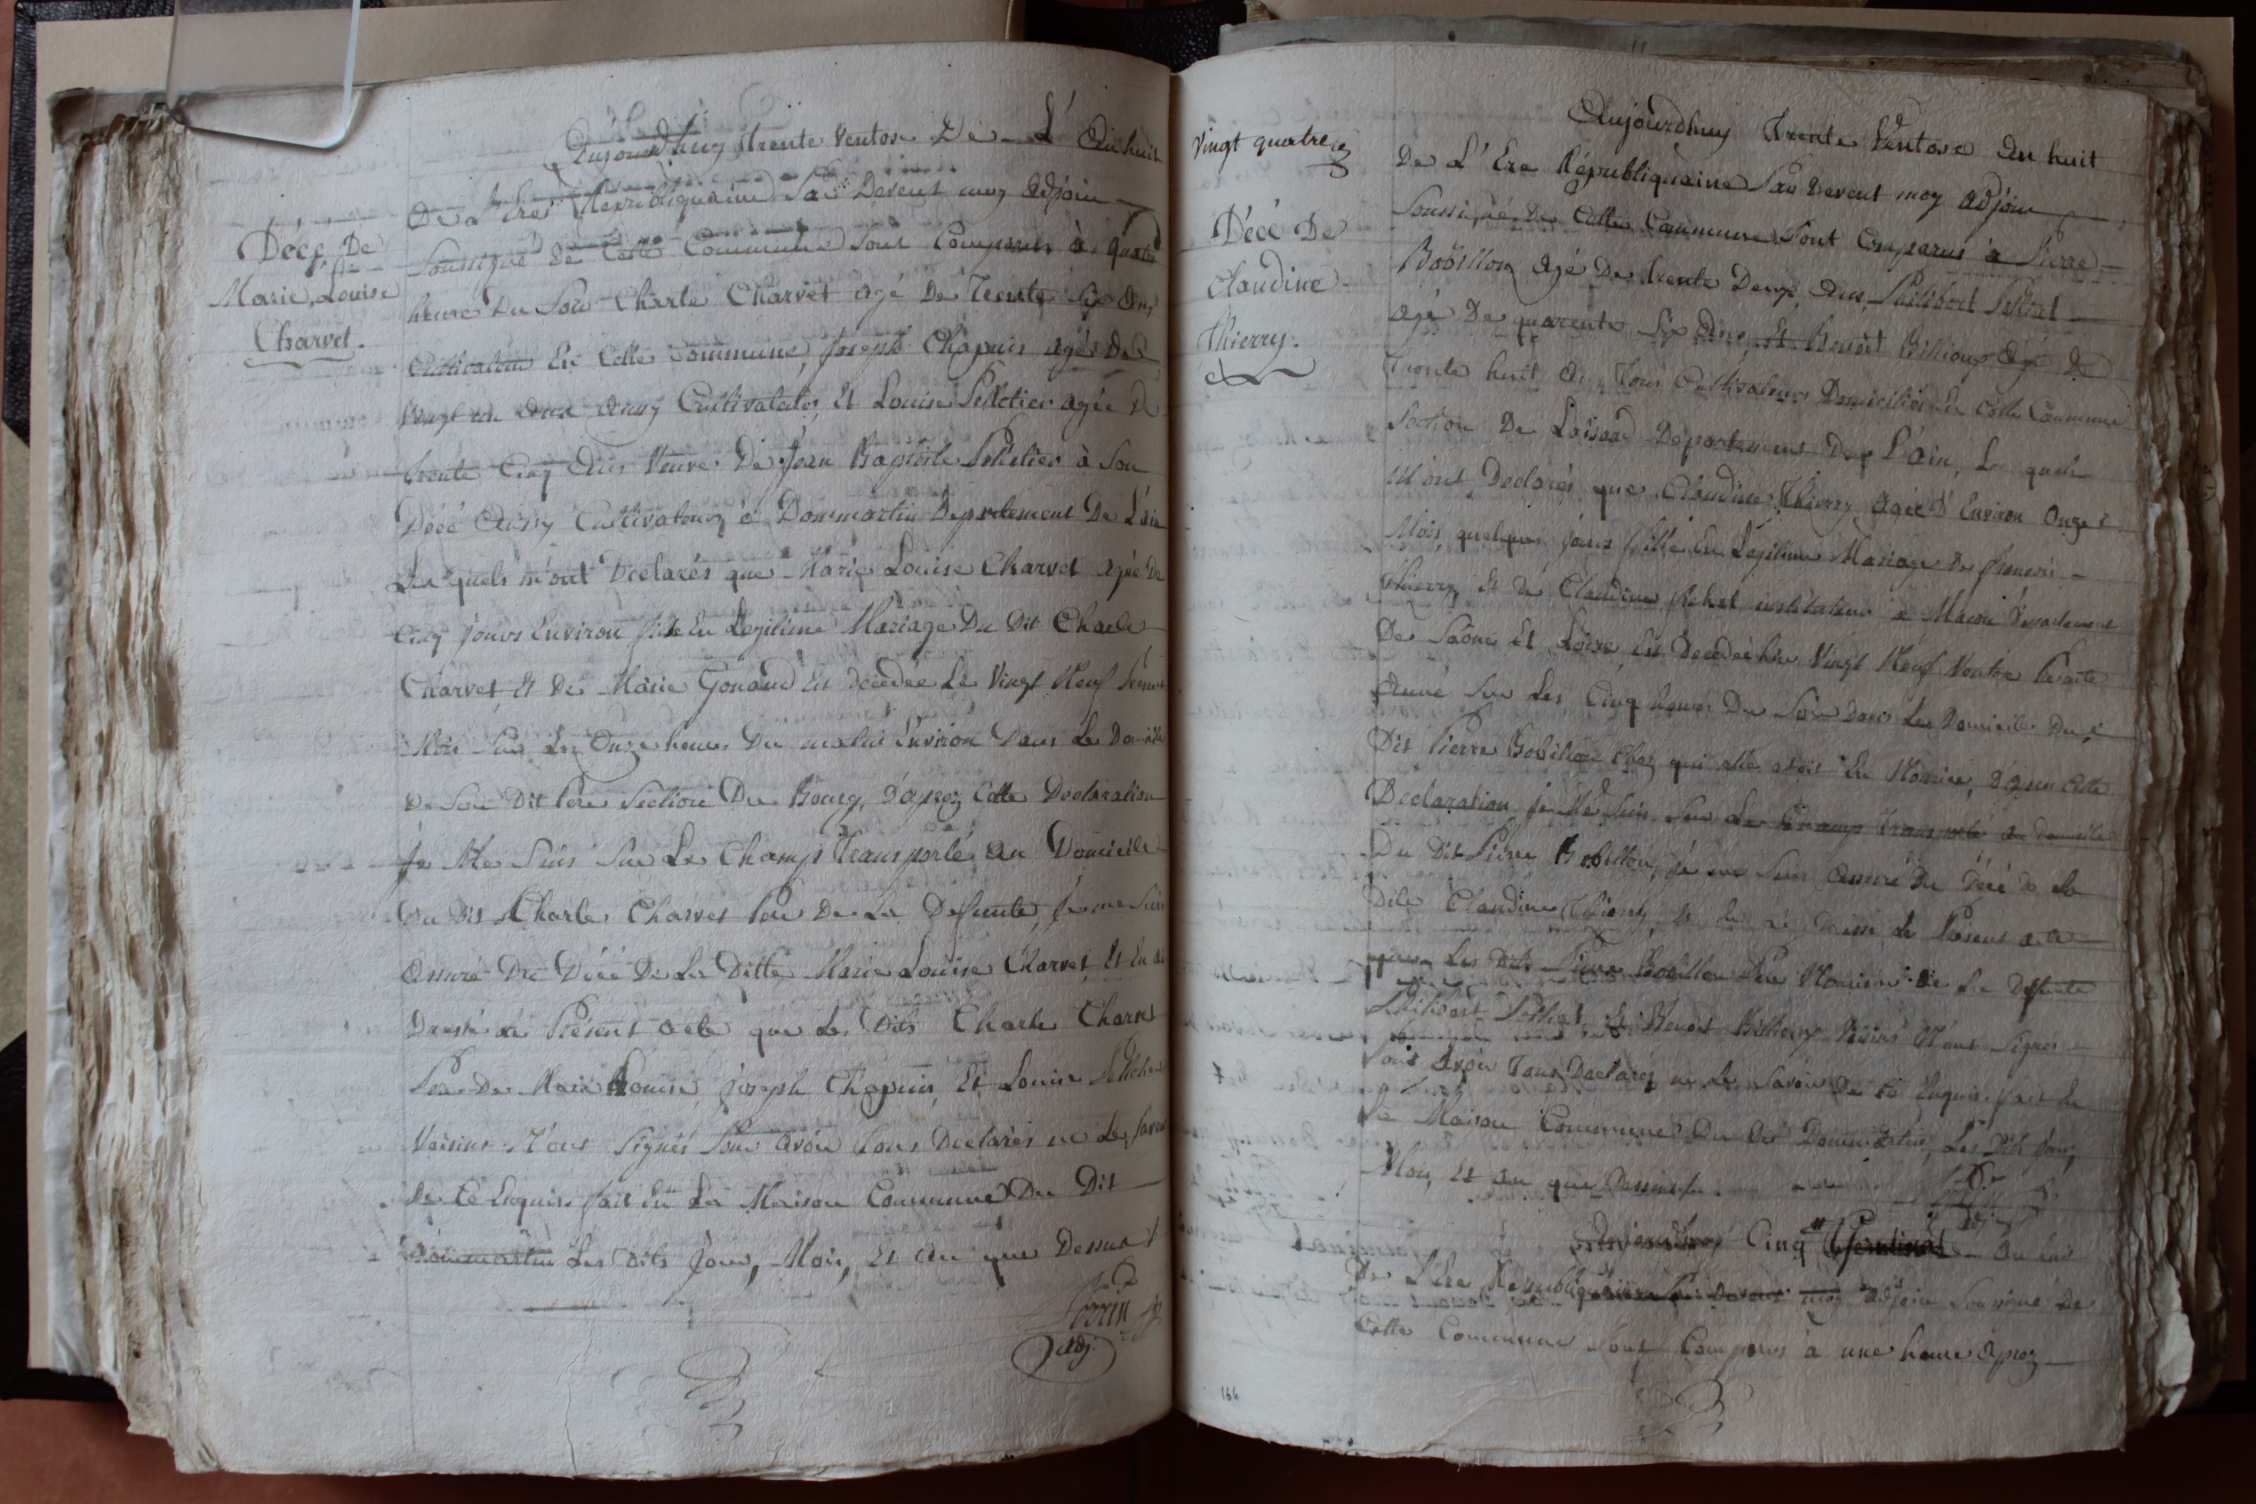 Décé De
Marie, Louise
Charvet.
Aujourdhuy trente Ventose De L' An huit
De L'Ere Républiquaine Par Devent moy Adjoin
Soussigné de Cette Commune Sont Comparus à quatre
heure Du Soir Charle Charvet agé De Trente Six Ans,
Cultivateur En Cette Commune, Joseph Chapuis agé De
Vingt un Ans Aussy Cultivateur, Et Louise Pelletier agée De
trente Cinq Ans Veuve De Jean Baptiste Pelletier à Son
Décé Aussy Cultivateur à Dommartin Departement De L'ain
Les quels m'ont Déclarés que Marie Louise Charvet agée De
Cinq jours Environ fille En Legitime Mariage Du Dit Charle
Charvet, Et De Marie Gonand Est décedée Le Vingt Neuf Present
Mois Sur Les Onze heures Du matin Environ Dans Le Domicile
De Son Dit Père Section Du Bourg, D'aprez Cette Declaration
Je Me Suis Sur Le Champs Transporté Au Domicile
Du Dit Charle Charvet Pere De La Defunte, Je me Suis
Assuré Du Décé De La Ditte Marie Louise Charvet, Et En ai
Dressé Le Présent Acte que Les Dits Charle Charvet
Père De Marie Louise, Joseph Chapuis, Et Louise Pelletier
Voisins N'ont Signés Pour avoir Tous Declarés ne Le Savoir
De Ce Enquis. fait En La Maison Commune Du Dit
Dommartin Les Dits Jour, Mois, Et An que Dessus
Adj.
Vingt quatre
Décé De
Claudine
Thierry.
Aujourdhuy Trente Ventose An huit
De L'Ere Républiquaine Par Devent moy Adjoin
Soussigné De Cette Commune Sont Comparus à Pierre
Bobillon Agé De Trente Deux Ans, Philibert
Agé De quarente Six Ans, Et Benoit Billioux Agé De
Trente huit Ans Tous Cultivateurs Domiciliés En Cette Commune
Section De Loisand Departement De L'ain, Les quels
M'ont Declarés que Claudine Thierry Agée D'Environ Onze
Mois quelques jours fille En Legitime Mariage De francois
Thierry Et De Claudine instituteur à Macon Departement
De Saône Et Loire Est Decedée hier Vingt Neuf Ventose Presente
Année Sur Les Cinq heures Du Soir Dans Le Domicile Du
Dit Pierre Bobillon Chez qui elle etoit En Nourrice, D'aprez Cette
Declaration je Me Suis Sur Le Champ transporté au domicile
Du Dit Pierre Bobillon, je me Suis Assuré Du Décé De La
Dite Claudine Thierry, Et En ai Dressé Le Present acte
que Les Dits Pierre Bobillon Père Nourricier De La Defunte
Philibert Et Benoit Billioux Voisins N'ont Signés
Pour Avoir Tous Declarés ne Le Savoir De Ce Enquis. fait En
La Maison Commune Du Dit Dommartin, Les Dits Jour,
Mois, Et An que Dessus.
Adj
Aujourdhuy Cinq Germinal An huit
De L'Ere Republiquaine Par Devent moy Adjoin Soussigné De
Cette Commune Sont Comparus à une heure Aprez
164